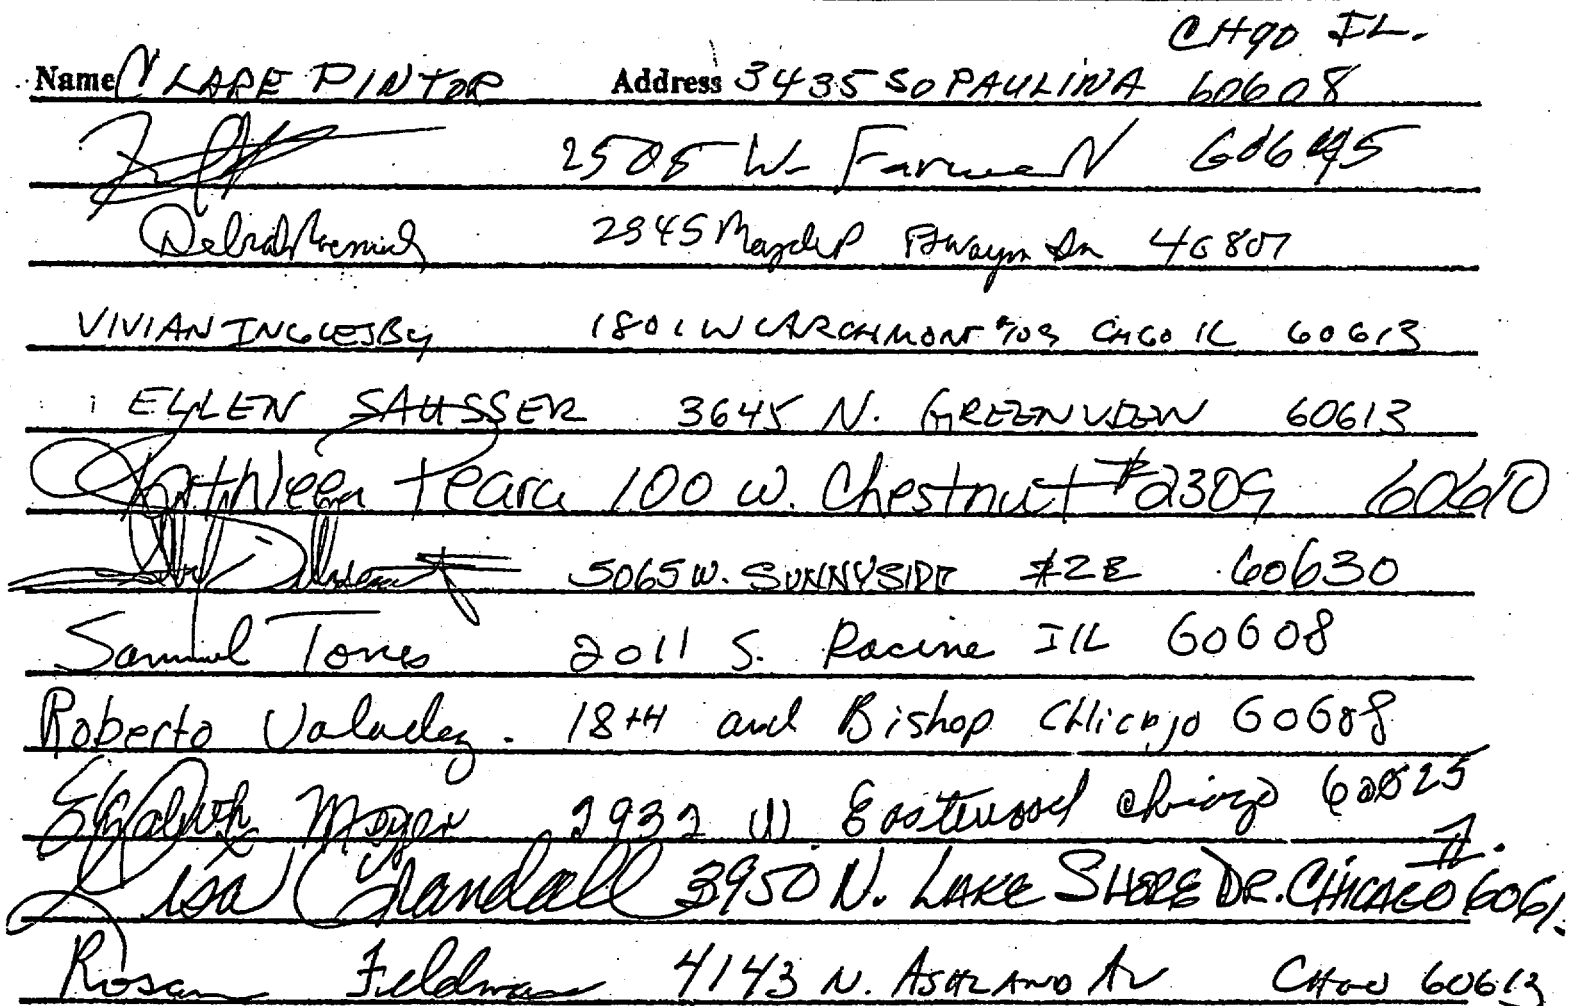 CHgo IL.
Name CLARE PINTOR Address 3435 SO PAULINA 60608
2505 W. Farwell 60645
2345 Ftwayn In 46807
VIVIAN INGLESBY 1801 W LARCHMONT #703 CHGO IL 60613
ELLEN SAUSSER 3645 N. GREENVIEW 60613
Kathleen 100 W. Chestnut #2309 60610
5065 W. SUNNYSIDE #2E 60630
Samuel Torres 2011 S. Racine Ill 60608
Roberto Valadez. 18th and Bishop Chicago 60608
Elizabeth Moyer 2932 W Eastwood Chicago 60625
Lisa Crandall 3950 N. LAKE SHORE DR. CHICAGO IL. 6061
Fieldman 4143 N. ASHLAND AV CHGO 60613